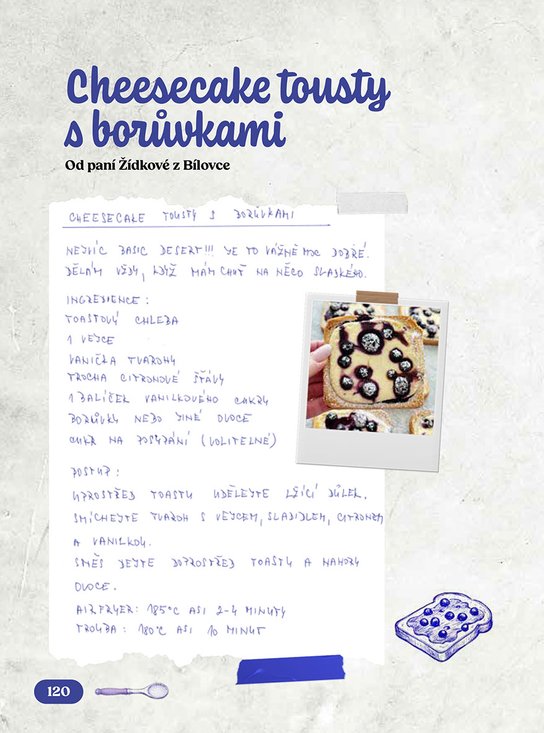 Cheesecake tousty
s borůvkami
Od paní Žídkové z Bílovce
CHEESECAKE TOUSTY S BORŮVKAMI
NEJVÍC BASIC DESERT!!! JE TO VÁŽNĚ MOC DOBRÉ.
DĚLÁM VŽDY, KDYŽ MÁM CHUŤ NA NĚCO SLADKÉHO.
INGREDIENCE:
TOASTOVÝ CHLEBA
1 VEJCE
VANIČKA TVAROHU
TROCHA CITRONOVÉ ŠŤÁVY
1 BALÍČEK VANILKOVÉHO CUKRU
BORŮVKY NEBO JINÉ OVOCE
CUKR NA POSYPÁNÍ (VOLITELNÉ)
POSTUP:
UPROSTŘED TOASTU UDĚLEJTE LŽÍCÍ DŮLEK.
SMÍCHEJTE TVAROH S VEJCEM, SLADIDLEM, CITRONEM
A VANILKOU.
SMĚS DEJTE DOPROSTŘED TOASTU A NAHORU
OVOCE.
AIRFRYER: 185°C ASI 2-4 MINUTY
TROUBA: 180°C ASI 10 MINUT
120